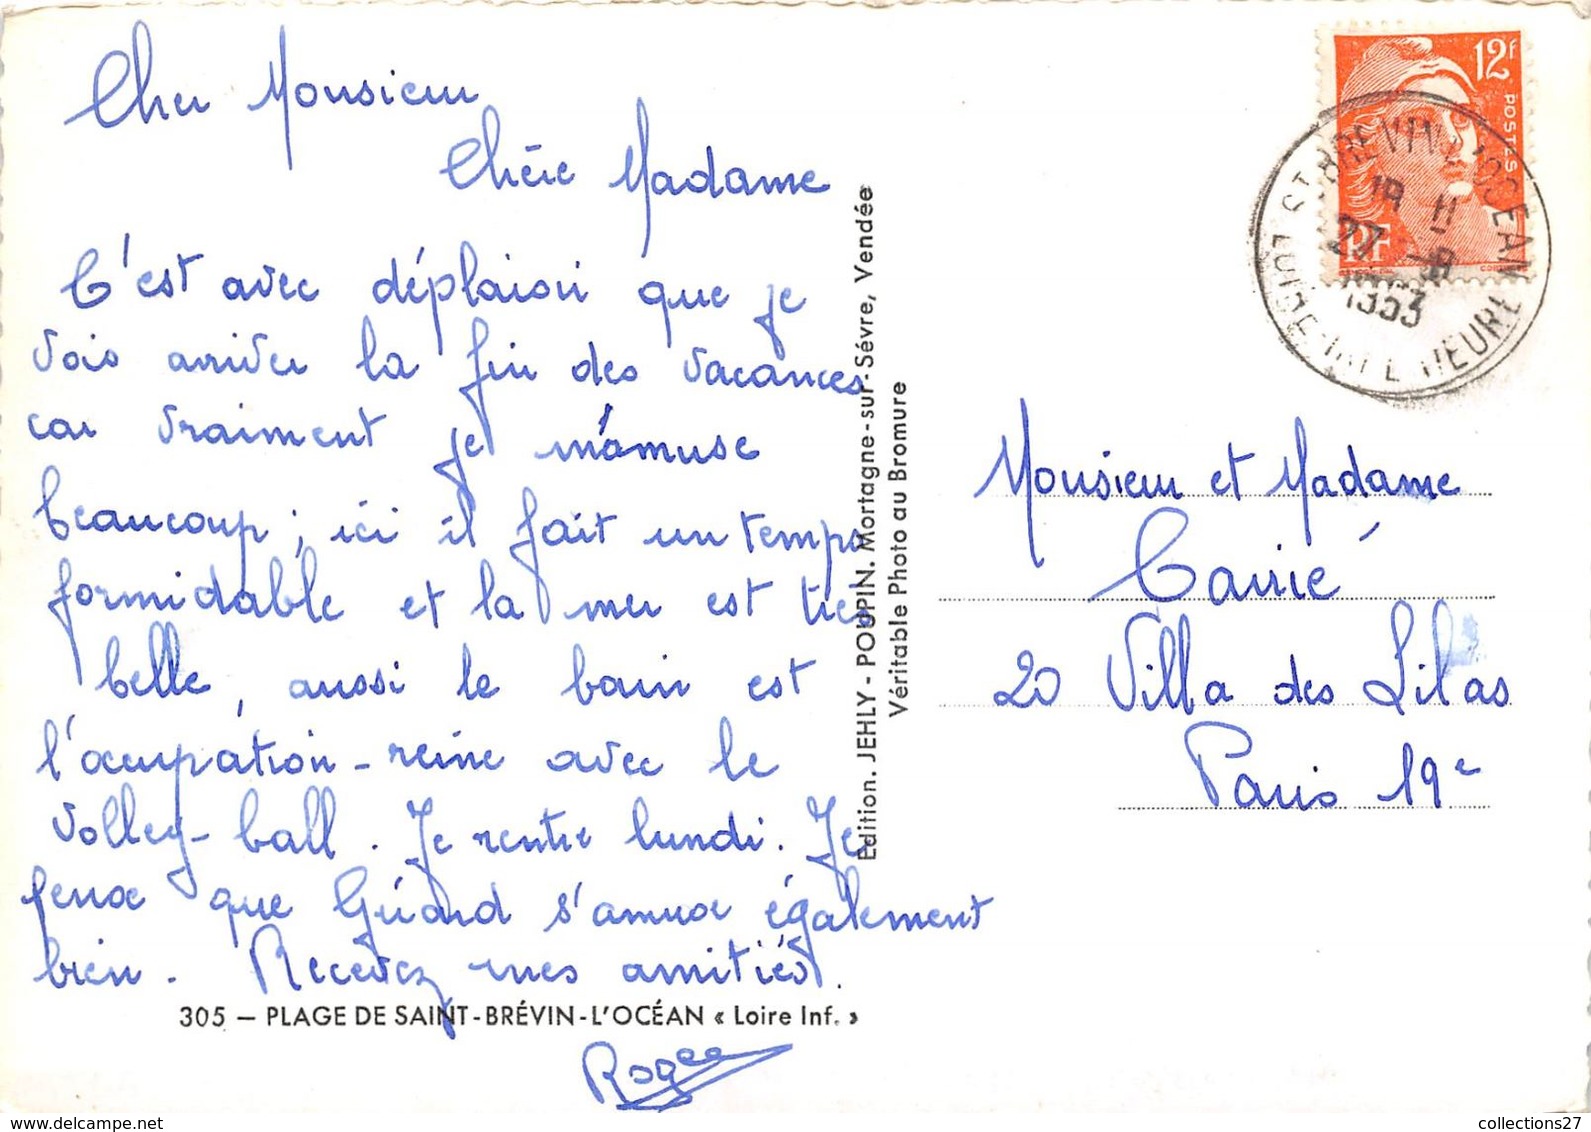 Cher Monsieur
Chère Madame
C'est avec déplaisir que je
vois arriver la fin des vacances
car vraiment je m'amuse
beaucoup ; ici il fait un temps
formidable et la mer est très
belle, aussi le bain est
l'occupation-reine avec le
volley-ball. Je rentre lundi. Je
pense que Gérard s'amuse également
bien. Recevez mes amitiés.
305 — PLAGE DE SAINT-BRÉVIN-L'OCÉAN « Loire Inf. »
Roger
Edition. JEHLY - POUPIN. Mortagne-sur-Sèvre, Vendée
Véritable Photo au Bromure
12F
POSTES
RF
ST BREVIN L'OCEAN
27
1953
Monsieur et Madame
Carrié
20 Villa des Lilas
Paris 19e
collections27